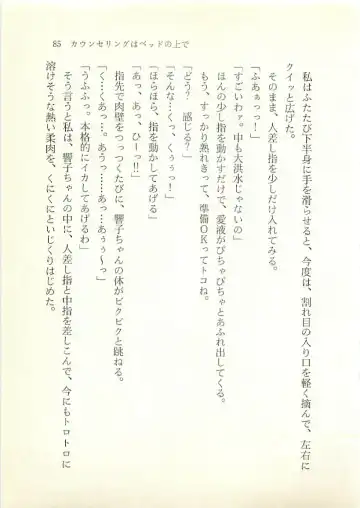 85 カウンセリングはベッドの上で
私はふたたび下半身に手を滑らせると、今度は、割れ目の入り口を軽く摘んで、左右に
クイッと広げた。
そのまま、人差し指を少しだけ入れてみる。
「ふあぁっっ！」
「すごいわァ。中も大洪水じゃないの」
ほんの少し指を動かすだけで、愛液がぴちゃぴちゃとあふれ出してくる。
もう、すっかり熟れきって、準備OKってトコね。
「どう？ 感じる？」
「そんな…くっ、くぅぅっ！」
「ほらほら、指を動かしてあげる」
「あっ、あっ、ひーっ!!」
指先で肉壁をつっつくたびに、響子ちゃんの体がビクビクと跳ねる。
「く…くあっ…。あうっ……あっぅぅ〜っ」
「うふふっ。本格的にイカしてあげるわ」
そう言うと私は、響子ちゃんの中に、人差し指と中指を差しこんで、今にもトロトロに
溶けそうな熱い柔肉を、くにくにといじくりはじめた。